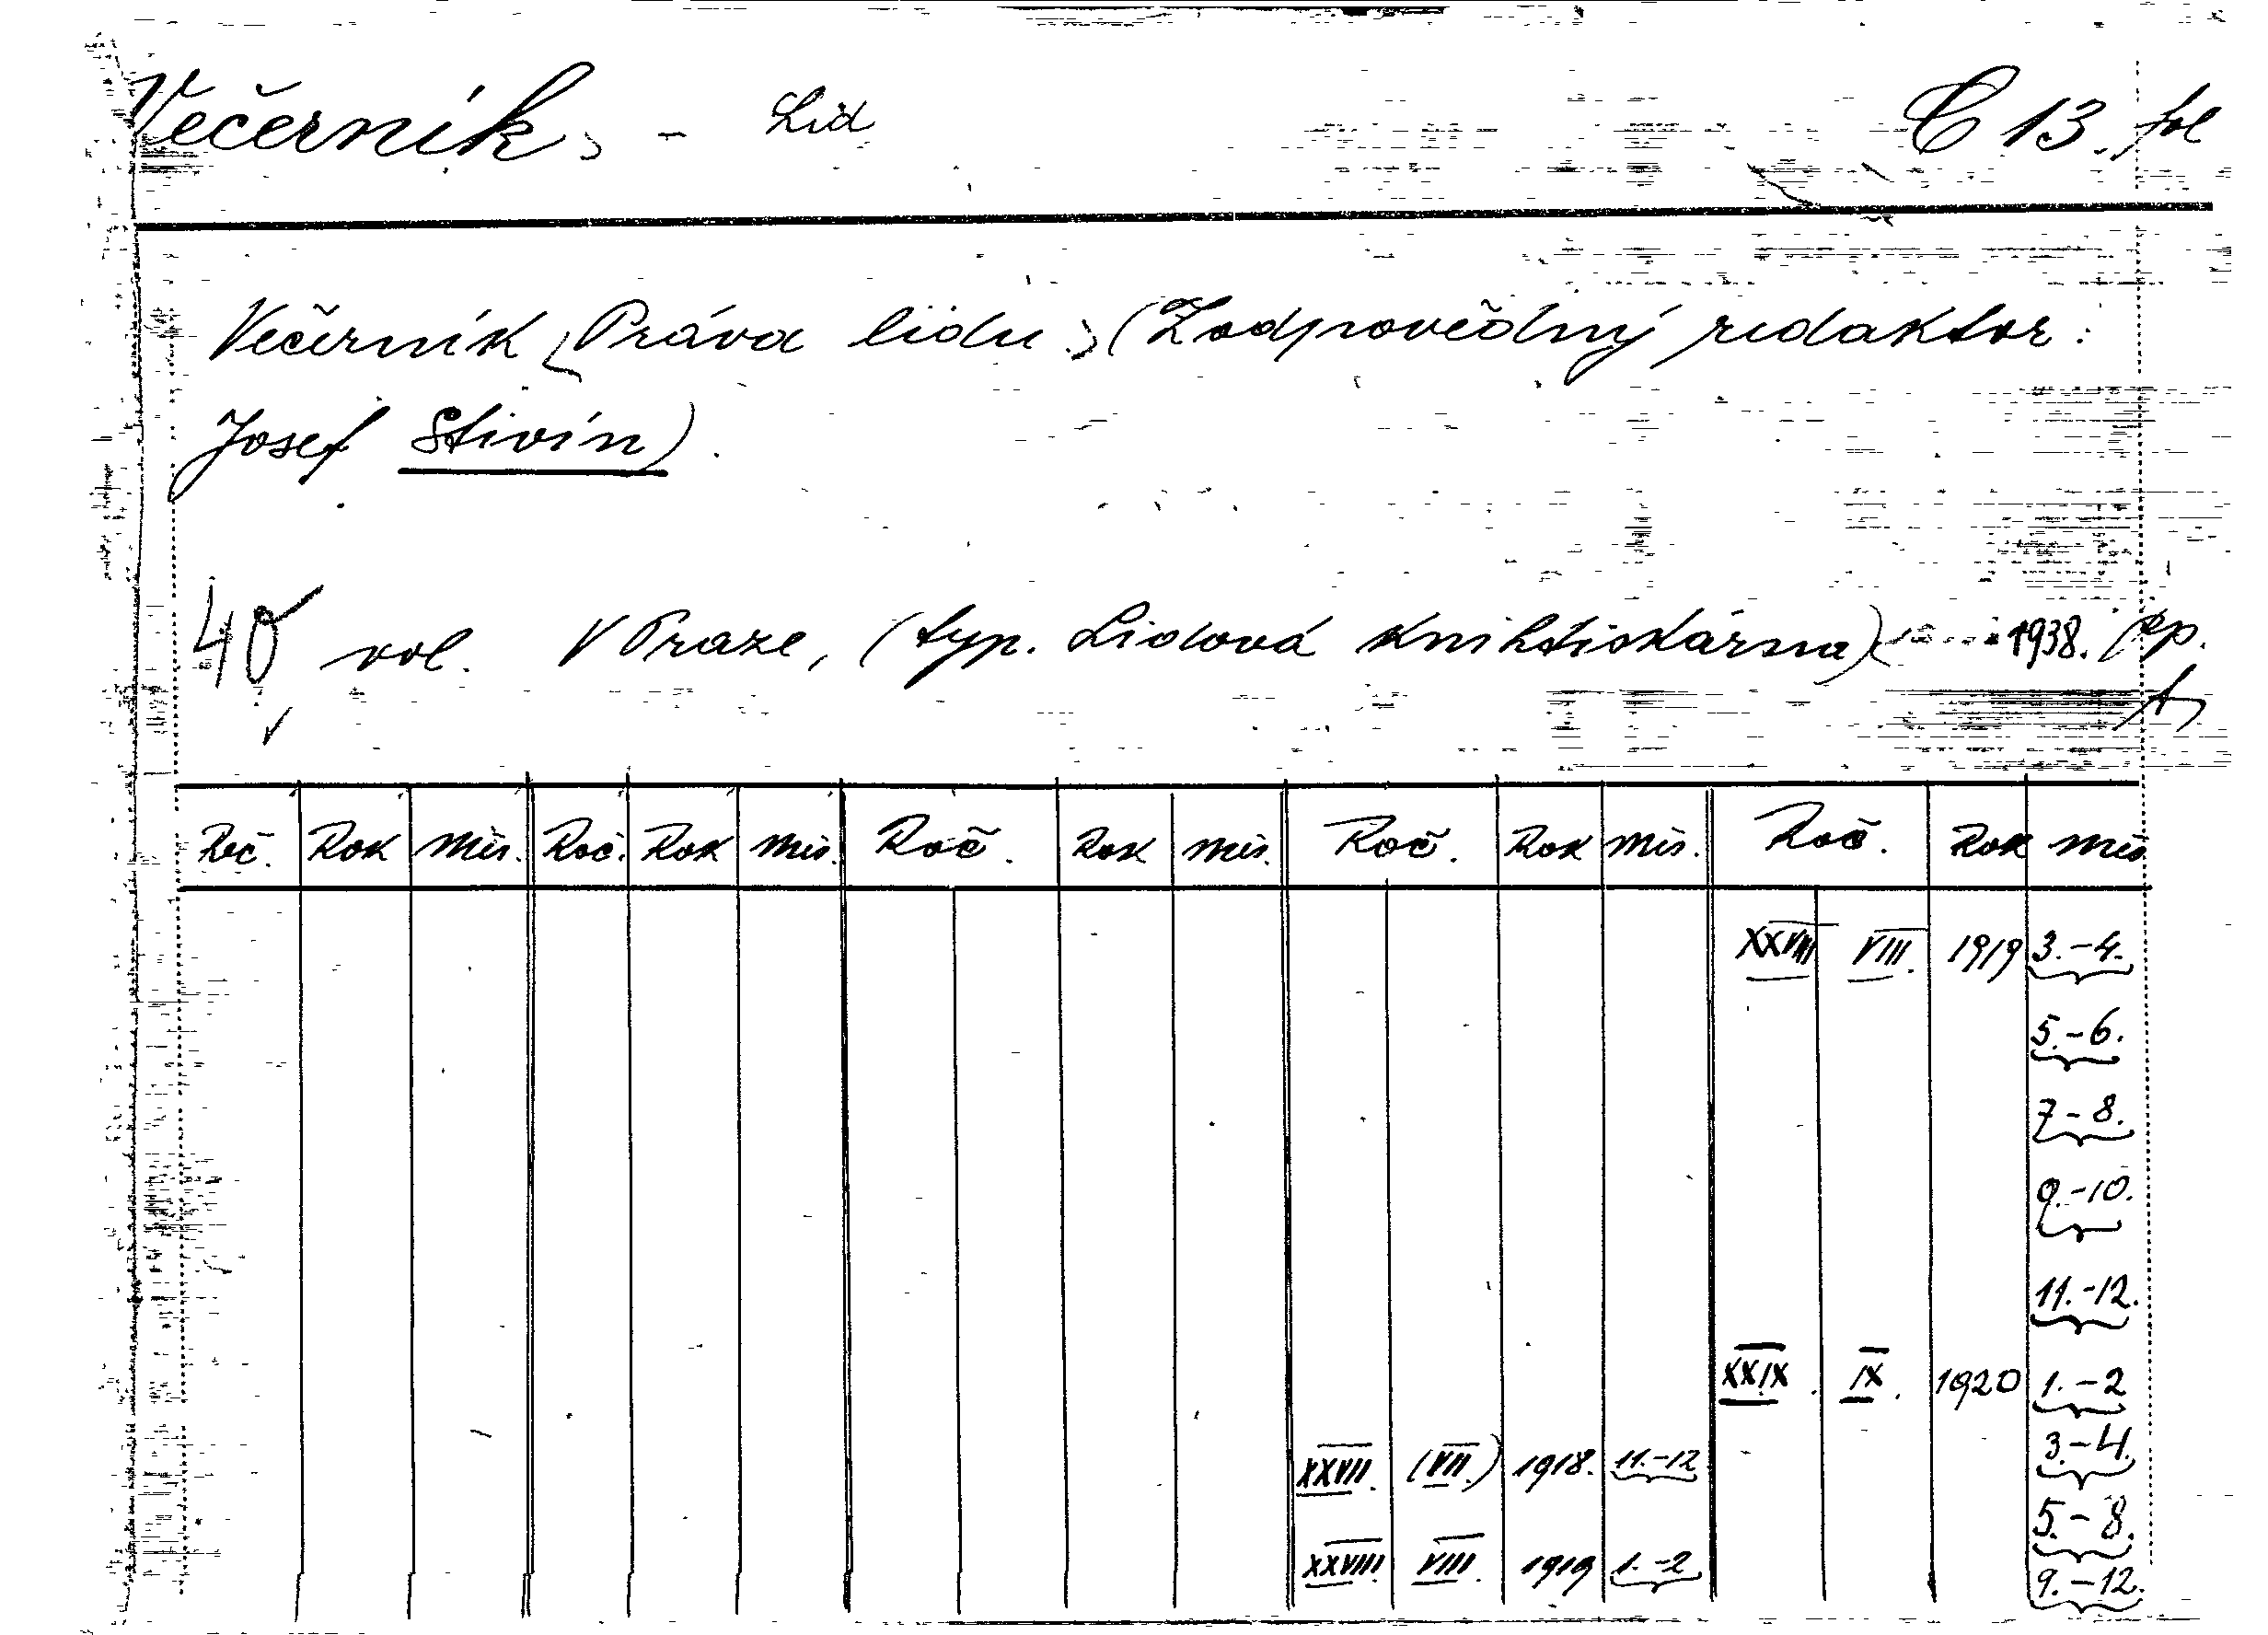 Večerník, - Lid C 13. fol
Večerník (Práva lidu.) (Zodpovědný redaktor:
Josef Stivín).
40 vol. V Praze, (typ. Lidová knihtiskárna) 1938. pp.
Roč. Rok Měs. Roč. Rok Měs. Roč. Rok Měs. Roč. Rok Měs. Roč. Rok Měs
XXVIII VIII. 1919 3.-4.
5.-6.
7-8.
9.-10.
11.-12.
XXIX. IX. 1920 1.-2
XXVII. (VII.) 1918. 11.-12 3.-4.
5.-8.
XXVIII. VIII. 1919 1.-2 9.-12.